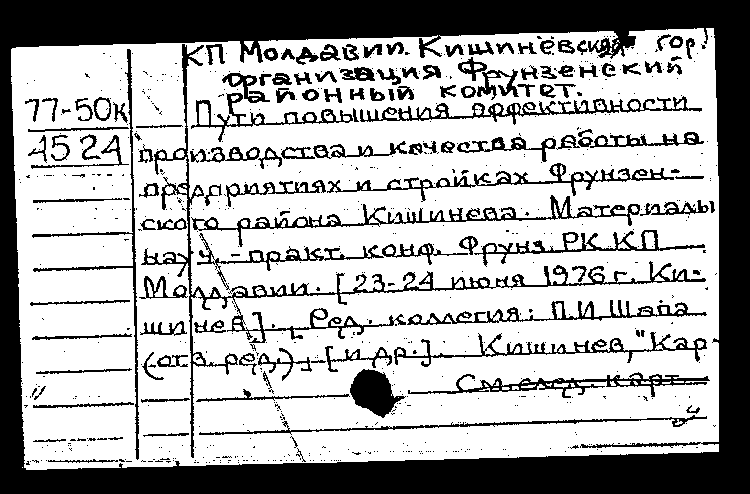 КП Молдавии. Кишинёвская гор.
организация. Фрунзенский
районный комитет.
77-50к Пути повышения эффективности
4524 производства и качества работы на
предприятиях и стройках Фрунзен-
ского района Кишинева. Материалы
науч.-практ. конф. Фрунз. РК КП
Молдавии. [23-24 июня 1976 г. Ки-
шинев]. [Ред. коллегия: П.И. Шапа
(отв. ред.), [и др.]. Кишинев, "Кар-
См. след. карт.